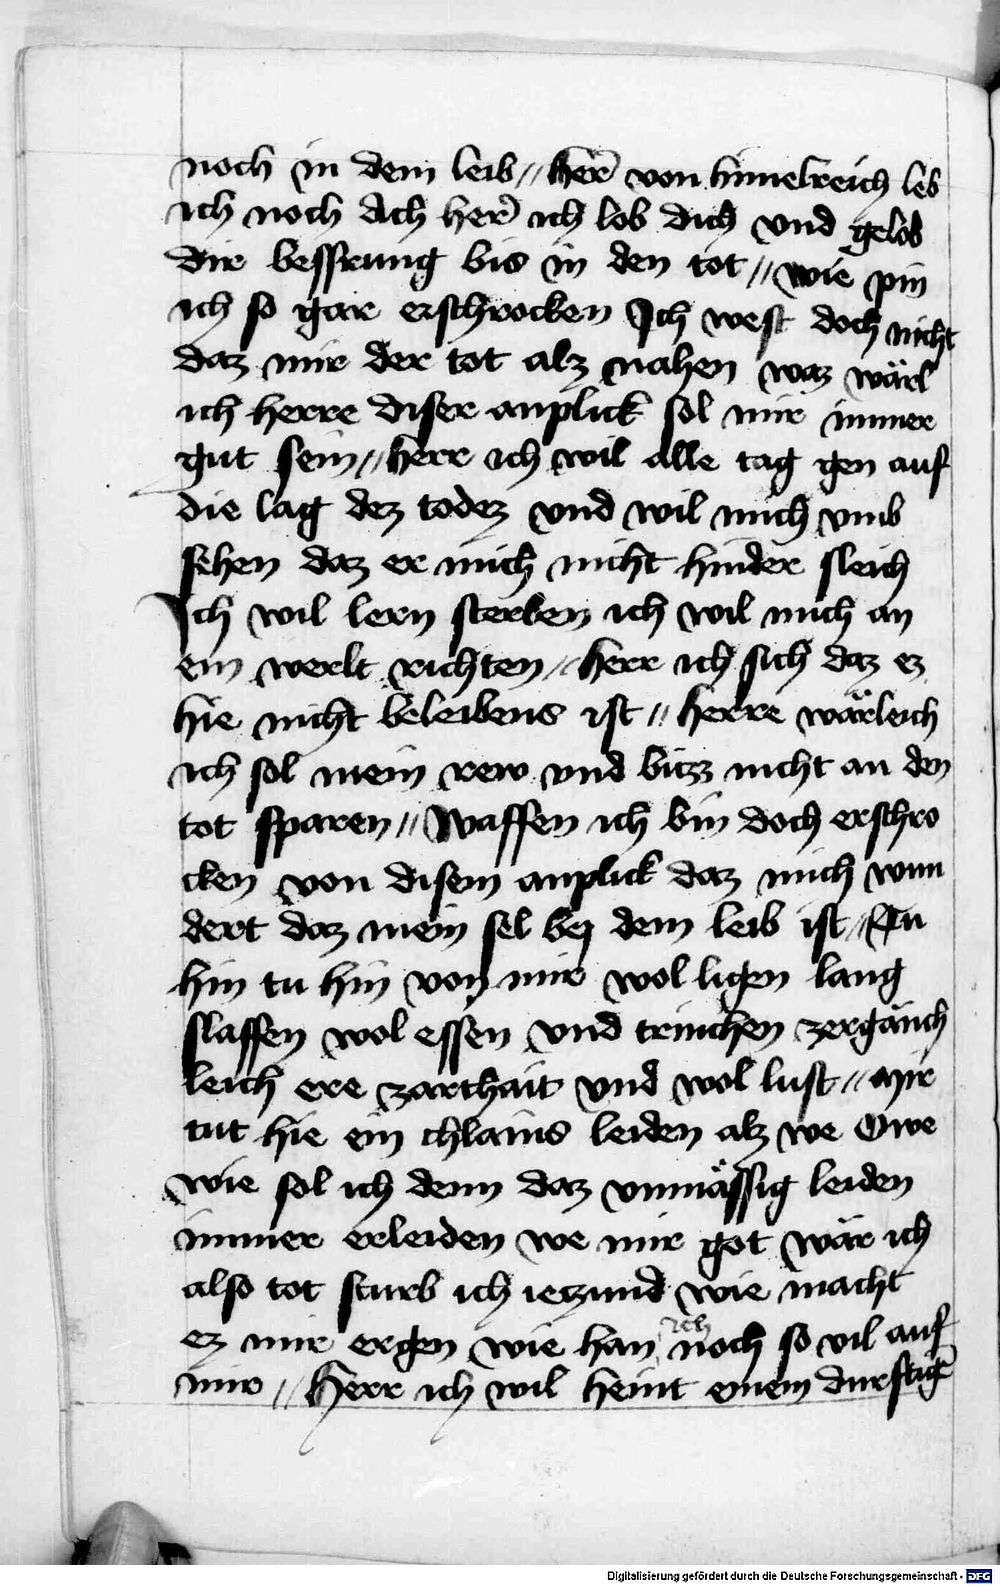 noch in dem leib // Her̄ von himelreich leb
ich noch Ach her̄ ich lob dich vnd gelob
dir bessrung bis in den tot // wie pin
ich so gar erschrocken Ich west doch nicht
daz mir der tot alz nahen waz wärl
ich herre diser anplick sol mir immer
gut sein // herr ich wil alle tag gen auf
die lag dez todez vnd wil mich vmb
sehen daz er mich nicht hinder sleich
Ich wil lern sterben ich wil mich an
ein werlt richten // herr ich sich daz ez
hie nicht beleibens ist // herre wärleich
ich sol mein rew vnd bizz nicht an den
tot sparen // Waffen ich bin doch erschro
cken von disem anplick daz mich wun
dert daz mein sel bej dem leib ist // Tu
hin tu hin von mir wol ligen lang
slaffen wol essen vnd trinchen zergänch
leich ere zarthait vnd wol lust // Mir
tut hie ein chlains leiden alz we Owe
wie sol ich denn daz vnmässig leiden
immer erleiden we mir got wär ich
also tot sturb ich iezund wie macht
ez mir ergen wie han ich noch so vil auf
mir // Herr ich wil heint einem durftiḡ
Digitalisierung gefördert durch die Deutsche Forschungsgemeinschaft - DFG